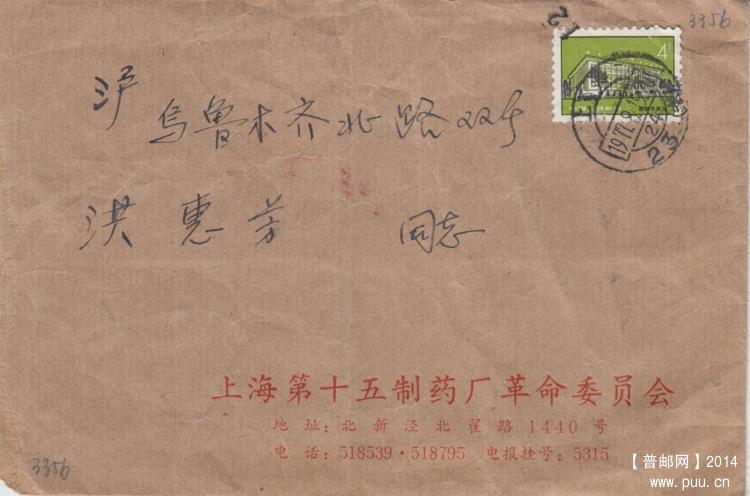 3356
4
1977.8.
24
23
12
沪
乌鲁木齐北路
洪惠芳 同志
上海第十五制药厂革命委员会
地址:北新泾北翟路1440号
电话:518539·518795 电报挂号:5315
3356
【普邮网】2014
www.puu.cn